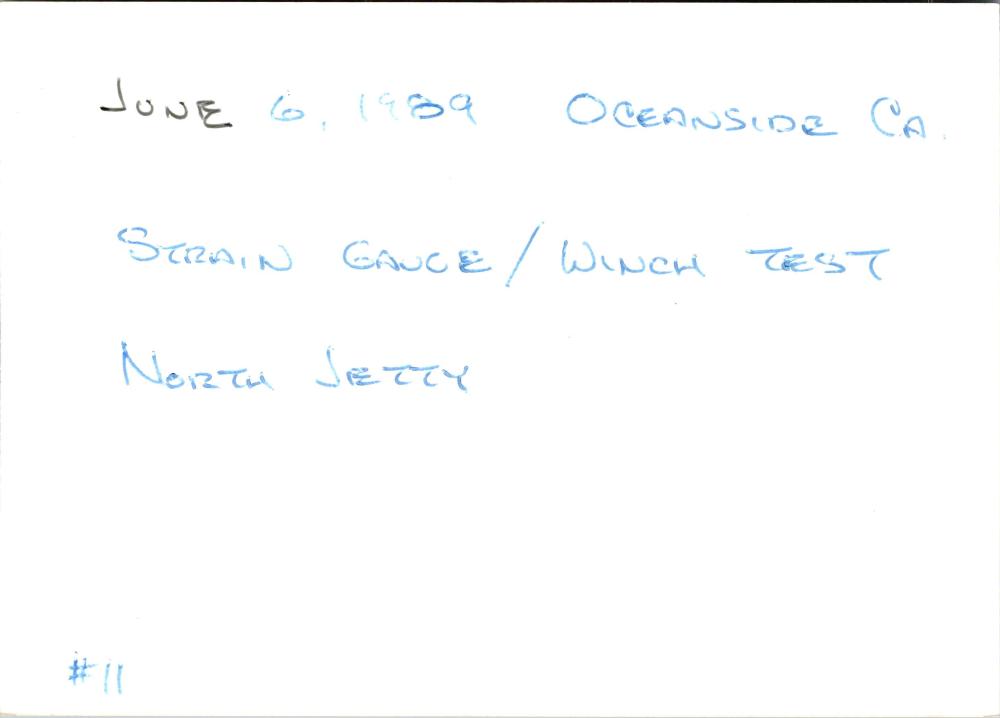 JUNE 6, 1989 OCEANSIDE CA.
STRAIN GAUGE / WINCH TEST
NORTH JETTY
#11